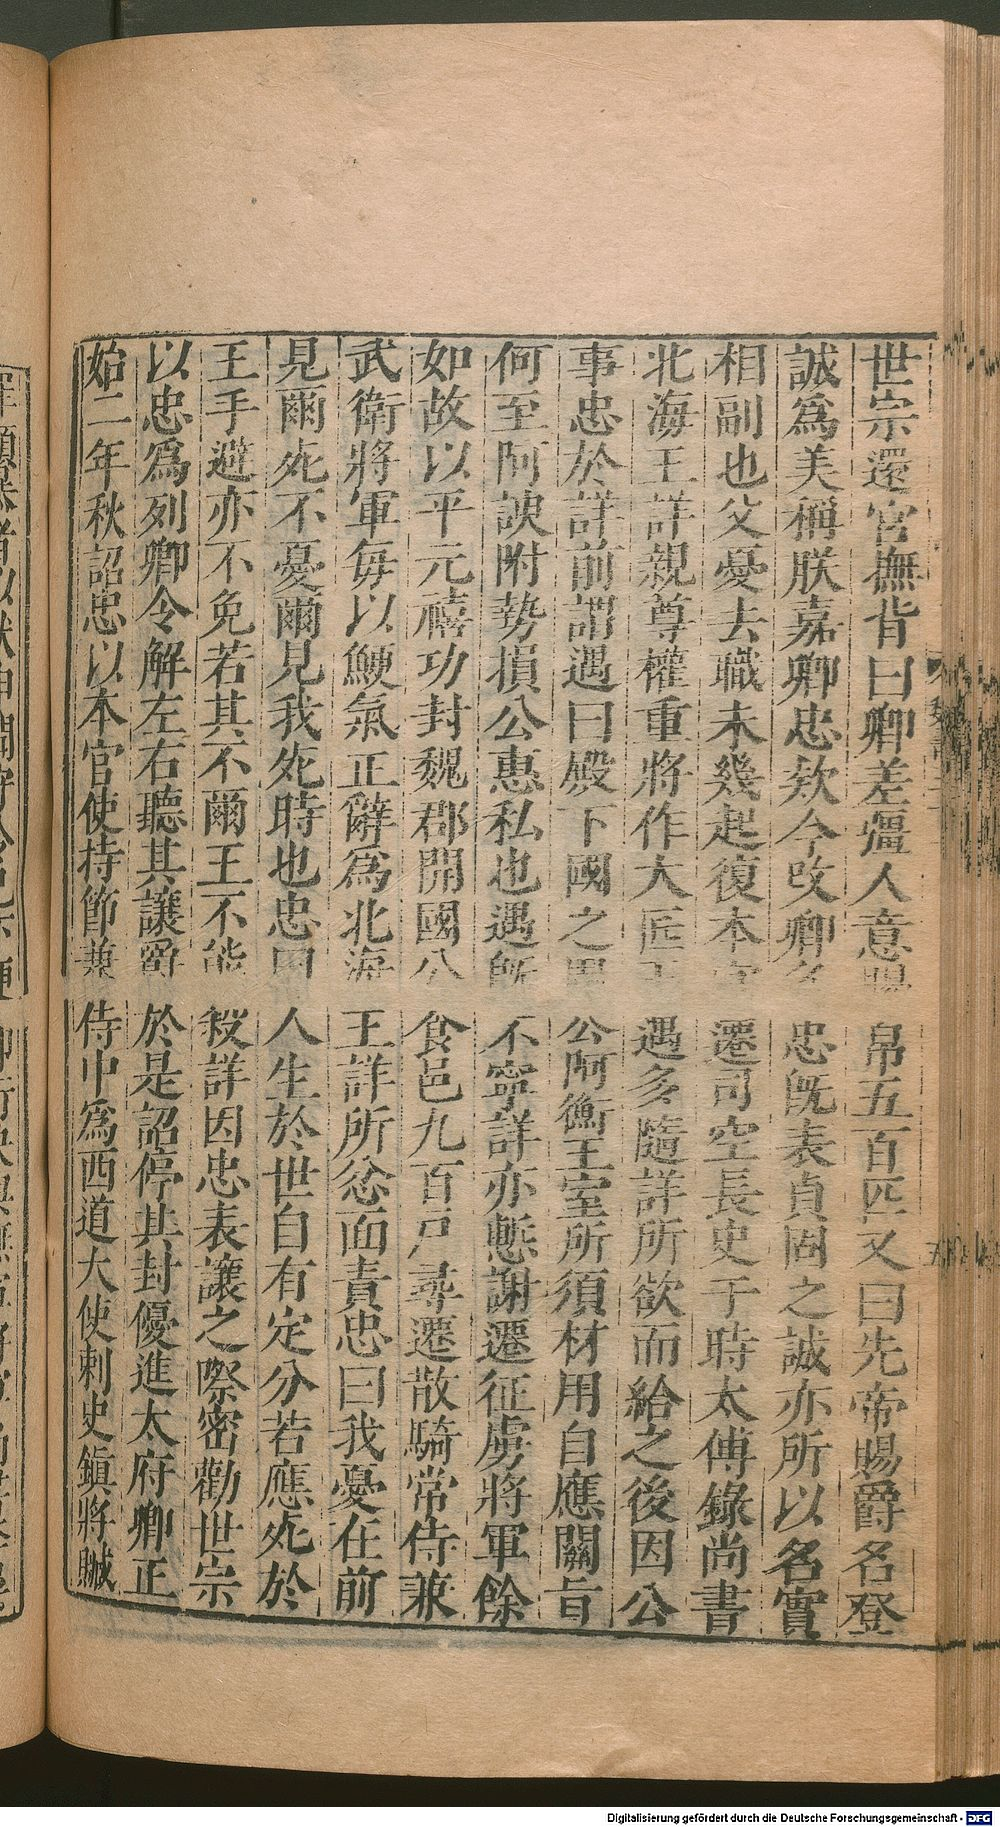 世宗還宮撫背曰卿差彊人意賜帛五百匹又曰先帝賜爵名登
誠爲美稱朕嘉卿忠欵今改卿名忠旣表貞固之誠亦所以名實
相副也父憂去職未幾起復本官遷司空長史于時太傅錄尚書
北海王詳親尊權重將作大匠王遇多隨詳所欲而給之後因公
事忠於詳前謂遇曰殿下國之周公阿衡王室所須材用自應關旨
何至阿諛附勢損公惠私也遇旣不寧詳亦慙謝遷征虜將軍餘
如故以平元禧功封魏郡開國公食邑九百戶尋遷散騎常侍兼
武衛將軍每以鯁氣正辭爲北海王詳所忿面責忠曰我憂在前
見爾死不憂爾見我死時也忠曰人生於世自有定分若應死於
王手避亦不免若其不爾王不能殺詳因忠表讓之際密勸世宗
以忠爲列卿令解左右聽其讓爵於是詔停其封優進太府卿正
始二年秋詔忠以本官使持節兼侍中爲西道大使刺史鎮將贓
Digitalisierung gefördert durch die Deutsche Forschungsgemeinschaft - DFG